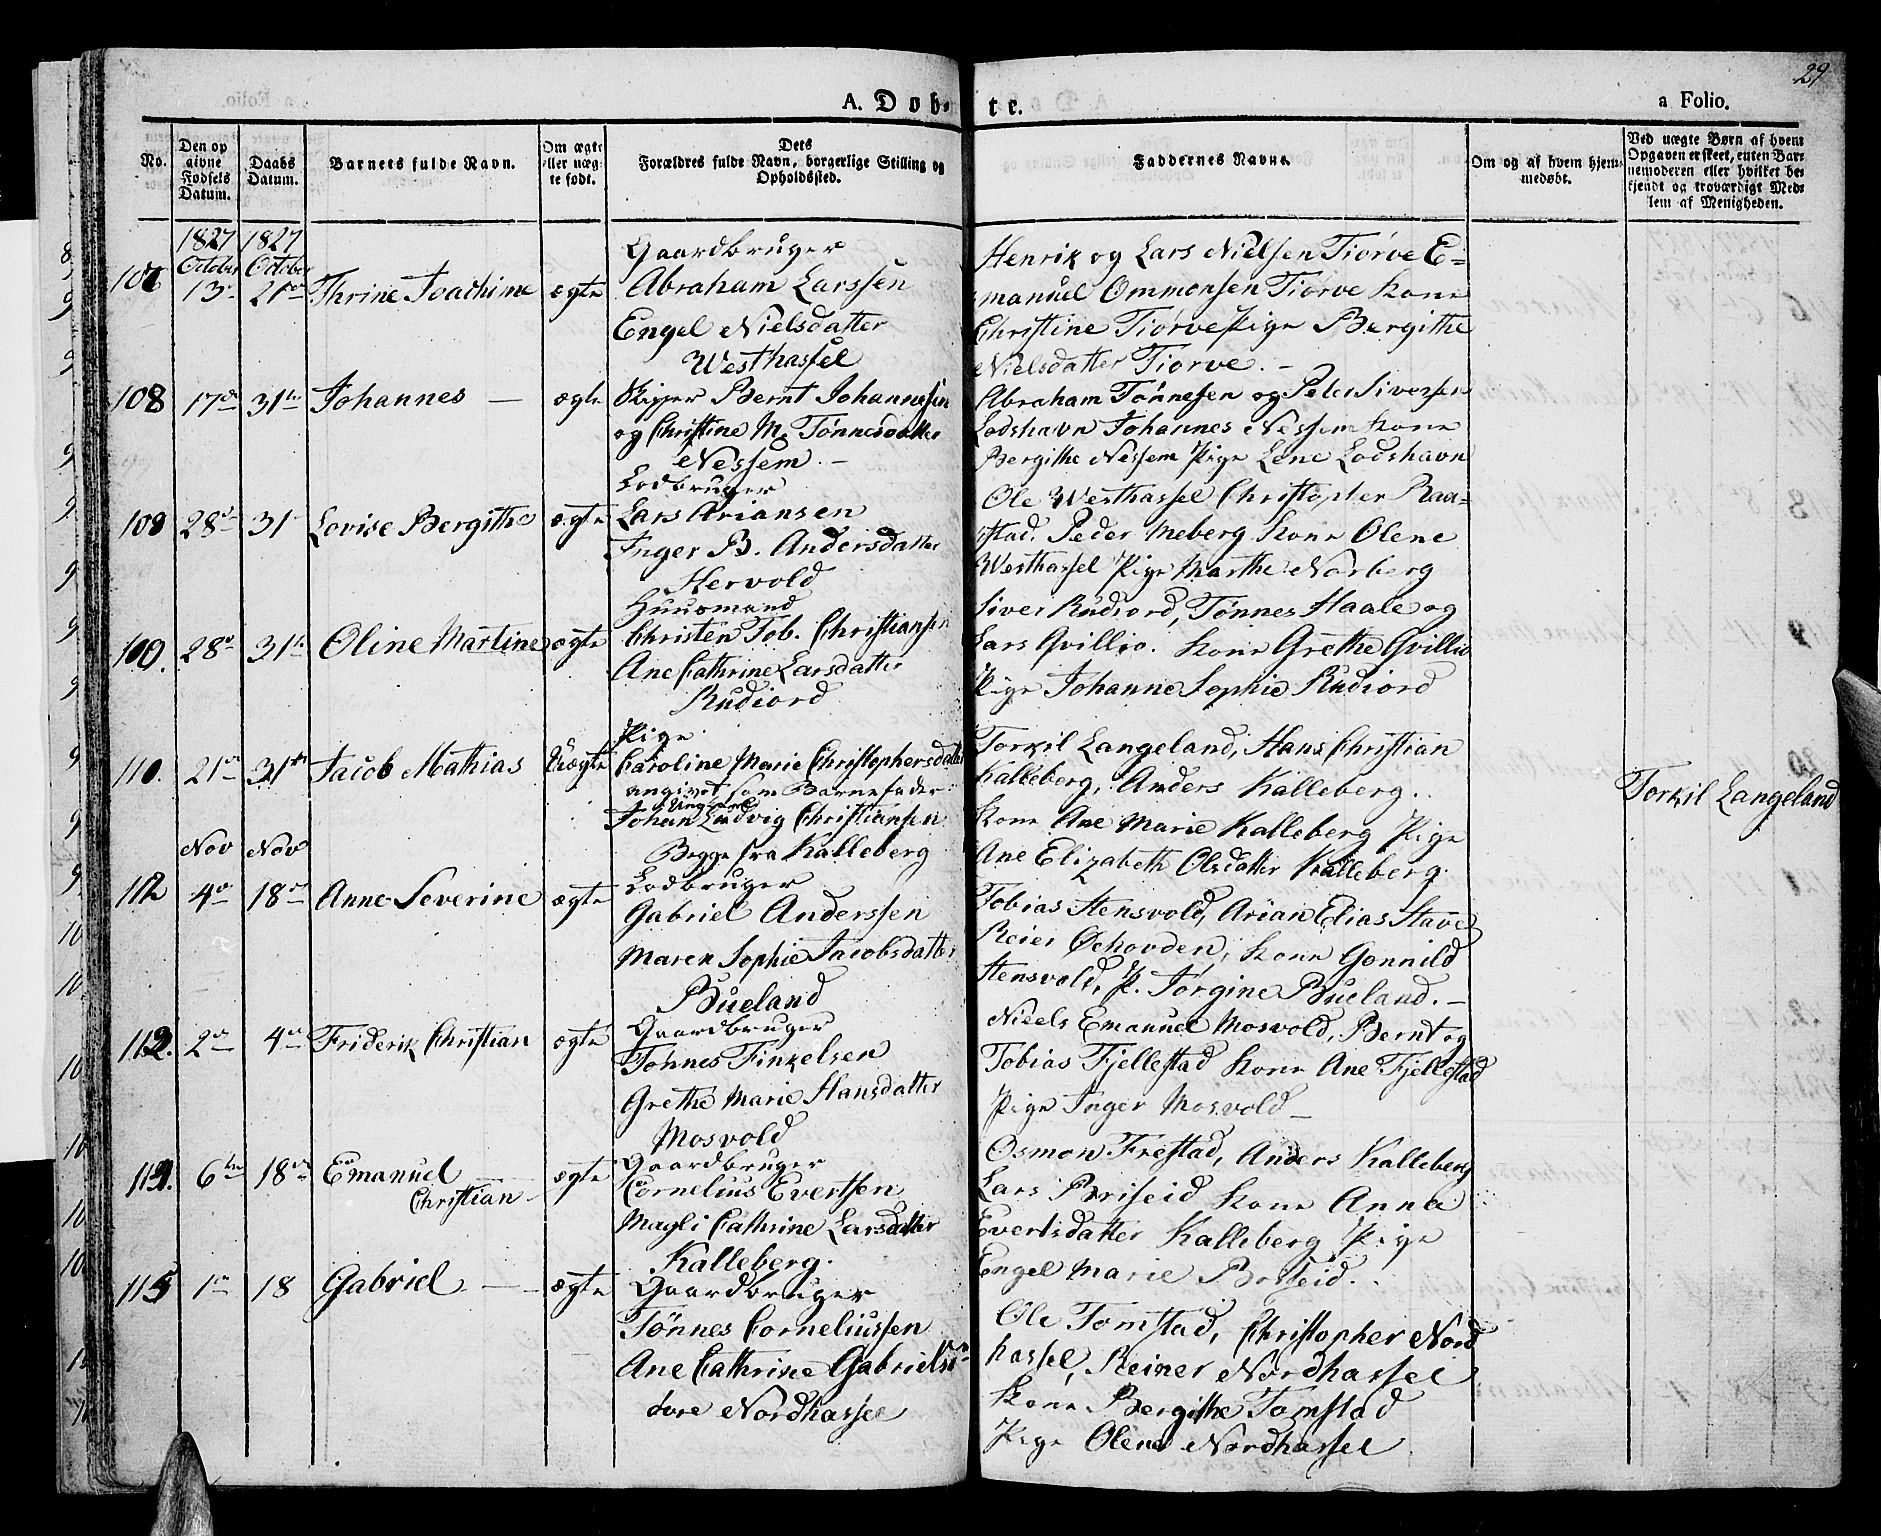 29
A. Døbte.
a Folio.
No.
Den opgivne Fødsels Datum.
Daabs Datum.
Barnets fulde Navn.
Om ægte eller uægte født.
Dets Forældres fulde Navn, borgerlige Stilling og Opholdssted.
Faddernes Navne.
Om og af hvem hjemmedøbt.
Ved uægte Børn af hvem Opgaven er skeet, enten Barnemoderen eller hvilket bekjendt og troværdigt Medlem af Menigheden.
1827 1827
October October
13de 21de Thrine Joachime ægte
Gaardbruger
Abraham Larssen
Engel Nielsdatter
Westhassel
Henrik og Lars Nielsen Tiörve E=
manuel Ommonsen Tiörve Kone
Christine Tiörve Pige Bergithe
Nielsdatter Tiorve. -
108 17de 31te Johannes - ægte
Skipper Bernt Johannesen
og Christine M. Tönnesdatter
Nessem. -
Abraham Tönnesen og Peder Siversen
Lodshavn Johannes Nessem Kone
Bergithe Nessem Pige Lene Lodshavn
109 28de 31 Lovise Bergithe ægte
Lodbruger
Lars Ariansen
Inger B. Andersdatter
Hervold
Ole Westhassel Christopher Raa=
stad. Peder Meberg Kone Olene
Westhassel Pige Marthe Norberg
28de 31te Oline Martine ægte
Huusmand
Christen Tob. Christiansen
Ane Cathrine Larsdatter
Rudiord
Siver Rudiord, Tönnes Haale og
Lars Qvillio. Kone Grethe Qvillio
Pige Johanne Sophie Rudiord
110. 21de 31te Jacob Mathias Uægte
Pige
Caroline Marie Christophersdatter
angivet som Barnefader
Ungkarl
Johan Ludvig Christiansen
Begge fra Kalleberg
Torkil Langeland, Hans Christian
Kalleberg, Anders Kalleberg.
Kone Ane Marie Kalleberg Pige
Ane Elizabeth Olsdatter Kalleberg.
Torkil Langeland
Nov Nov
112 4de 18de Anne Severine ægte
Lodbruger
Gabriel Anderssen
Maren Sophie Jacobsdatter
Bueland
Tobias Stensvold, Arian Elias Stave
Reier Öehovden, Kone Gonnild
Stensvold, P. Jörgine Bueland. -
2de 4de Friderik Christian ægte
Gaardbruger
Tönnes Finkelsen
Grethe Marie Hansdatter
Mosvold
Nieels Emanuel Mosvold, Bernt og
Tobias Fjellestad Kone Ane Fjellestad
Pige Inger Mosvold -
6te 18de Emanuel
Christian ægte
Gaardbruger
Cornelius Evertsen
Magli Cathrine Larsdatter
Kalleberg.
Osmon Frestad, Anders Kalleberg
Lars Briseid Kone Anna
Evertsdatter Kalleberg Pige
Engel Marie Briseid.
115 1de 18 Gabriel - ægte
Gaardbruger
Tönnes Corneliussen
Ane Cathrine Gabriels=
datre Nordhassel
Ole Tomstad, Christopher Nord
hassel, Reiner Nordhassel
Kone Bergithe Tomstad
Pige Olene Nordhassel